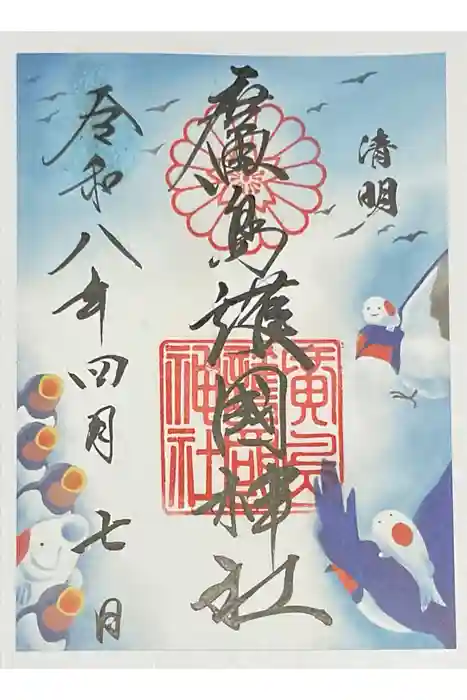 清明
廣島護國神社
廣島護國神社
令和八年四月七日